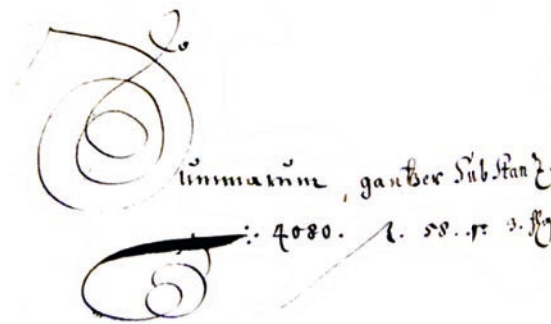 Summarum, gantzer Substantz.
:. 4080. f. 58. 3.